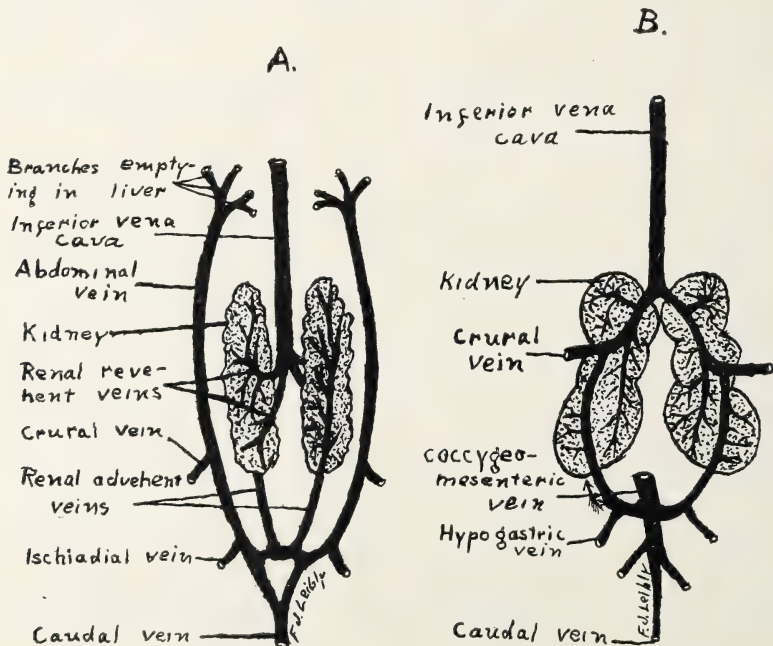 A.
Branches empty-
ing in liver
Inferior vena
cava
Abdominal
vein
Kidney
Renal reve-
hent veins
Crural vein
Renal advehent
veins
Ischiadial vein
Caudal vein
F.J. Leibly
B.
Inferior vena
cava
Kidney
Crural
vein
coccygeo-
mesenteric
vein
Hypogastric
vein
Caudal vein
F.J. Leibly